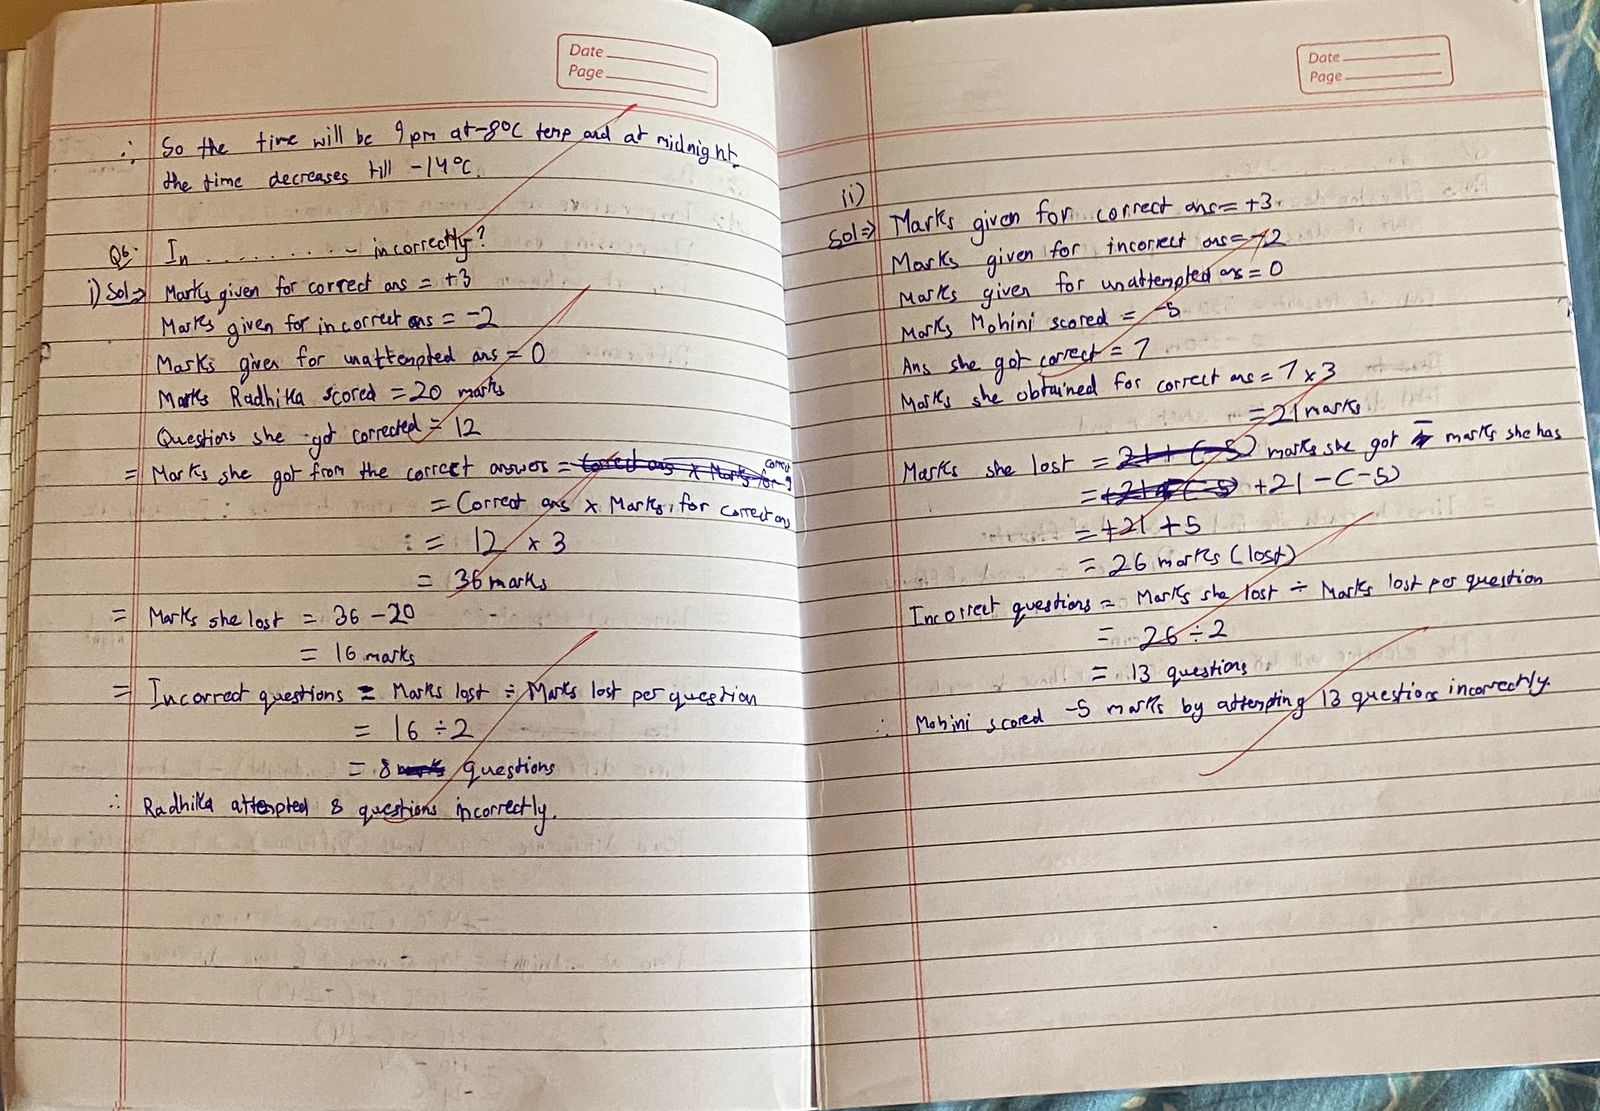 Date
Page
∴ So the time will be 9 pm at -8°C temp and at midnight
the time decreases till -14°C.
Q6. In ........ - incorrectly?
i) Sol⇒ Marks given for correct ans = +3
Marks given for incorrect ans = -2
Marks given for unattempted ans = 0
Marks Radhika scored = 20 marks
Questions she got corrected = 12
= Marks she got from the correct answers =
= Correct ans × Marks for correct ans
= 12 × 3
= 36 marks
= Marks she lost = 36 - 20
= 16 marks
= Incorrect questions = Marks lost ÷ Marks lost per question
= 16 ÷ 2
= 8 questions
∴ Radhika attempted 8 questions incorrectly.
Date
Page
ii)
Sol⇒ Marks given for correct ans = +3
Marks given for incorrect ans = -2
Marks given for unattempted ans = 0
Marks Mohini scored = -5
Ans she got correct = 7
Marks she obtained for correct ans = 7 × 3
= 21 marks
Marks she lost = marks she got - marks she has
= +21 - (-5)
= +21 + 5
= 26 marks (lost)
Incorrect questions = Marks she lost ÷ Marks lost per question
= 26 ÷ 2
= 13 questions
∴ Mohini scored -5 marks by attempting 13 questions incorrectly.